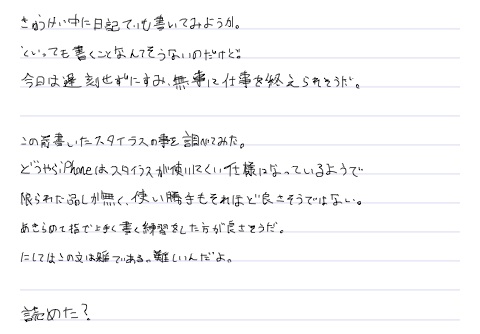 きゅうけい中に日記でも書いてみようか。
といっても書くことなんてそうないのだけど。
今日は遅刻せずにすみ、無事に仕事を終えられそうだ。
この前書いたスタイラスの事を調べてみた。
どうやらiPhoneはスタイラスが使いにくい仕様になっているようで
限られた品しか無く、使い勝手もそれほど良さそうではない。
あきらめて指で上手く書く練習をした方が良さそうだ。
にしてはこの文は雑である。難しいんだよ。
読めた？